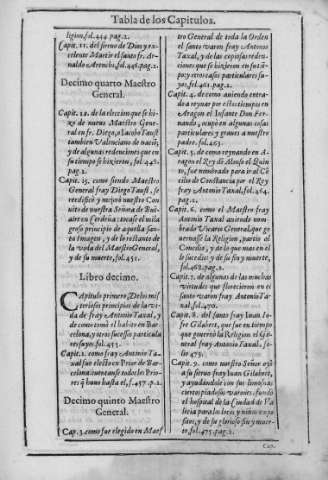 Tabla de los Capitulos.
ligion, fol. 444. pag. 2.
Capit. 11. del sieruo de Dios y ex-
celente Martir el santo fr. Ar-
naldo Arenchi, fol. 446. pag. 2.
Decimo quarto Maestro
General.
Capit. 12. de la eleccion que se hi-
zo de nueuo Maestro Gene-
ral en fr. Diego, o Iacobo Taust
tambien Valenciano de naciõ,
y de algunas redenciones que en
su tiempo se hizieron, fol. 448.
pag. 2.
Capit. 13. como siendo Maestro
General fray Diego Taust, se
reedificó y mejoró nuestro Con-
uento de nuestra Señora de Bu-
ayre en Cerdeña: trata se el mila-
groso principio de aquella san-
ta Imagen, y de lo restante de
la vida del Maestro General,
y de su muerte, fol. 451.
Libro decimo.
Capitulo primero, De los mis-
teriosos principios de la vi-
da de fray Antonio Taxal,
y de como tomó el habito en Bar-
celona, y otros sucessos particula-
res suyos. fol. 453.
Capit. 2. como fray Antonio Ta-
xal fue electo en Prior de Bar-
celona: cuentanse todos los Prio-
res q̃ huuo hasta el, f. 457. p. 2.
Decimo quinto Maestro
General.
Cap. 3. como fue elegido en Maes-
tro General de toda la Orden
el santo varon fray Antonio
Taxal, y de las copiosas reden-
ciones que se hizieron en su tiẽ-
po, y otras cosas particulares su-
yas. fol. 461. pag. 2.
Capit. 4. de como auiendo entra-
do a reynar por estos tiempos en
Aragon el Infante Don Fer-
nando, ocupó en algunas cosas
particulares y graues a nuestro
padre. fol. 463.
Capit. 5. de como reynando en A-
ragon el Rey Dõ Alonso el Quin-
to, fue nombrado para ir al Cõ-
cilio de Constancia por el Rey
fray Antonio Taxal, fol. 464.
pag. 2.
Capit. 6. como el Maestro fray
Antonio Taxal auiendo nom-
brado Vicario General, que go-
uernasse la Religion, partio al
Concilio, y de lo que mas en el
le sucedio; y de su fin y muerte,
fol. 468. pag. 2.
Capit. 7. de algunas de las muchas
virtudes que florecieron en el
santo varon fray Antonio Ta-
xal, fol. 470.
Capit. 8. del santo fray Iuan Io-
fre Gilabert, que fue en tiempo
que gouernó la Religion el Ge-
neral fray Antonio Taxal. fo-
lio 473.
Capit. 9. como nuestro Señor oyò
a su sieruo fray Iuan Gilabert,
y ayudandole con sus limosnas
ciertos piadosos varones, fundó
el hospital de la Ciudad de Va-
lencia para locos y niños expo-
sitos, y de su glorioso fin y muer-
te. fol. 475. pag. 2.
Cap.